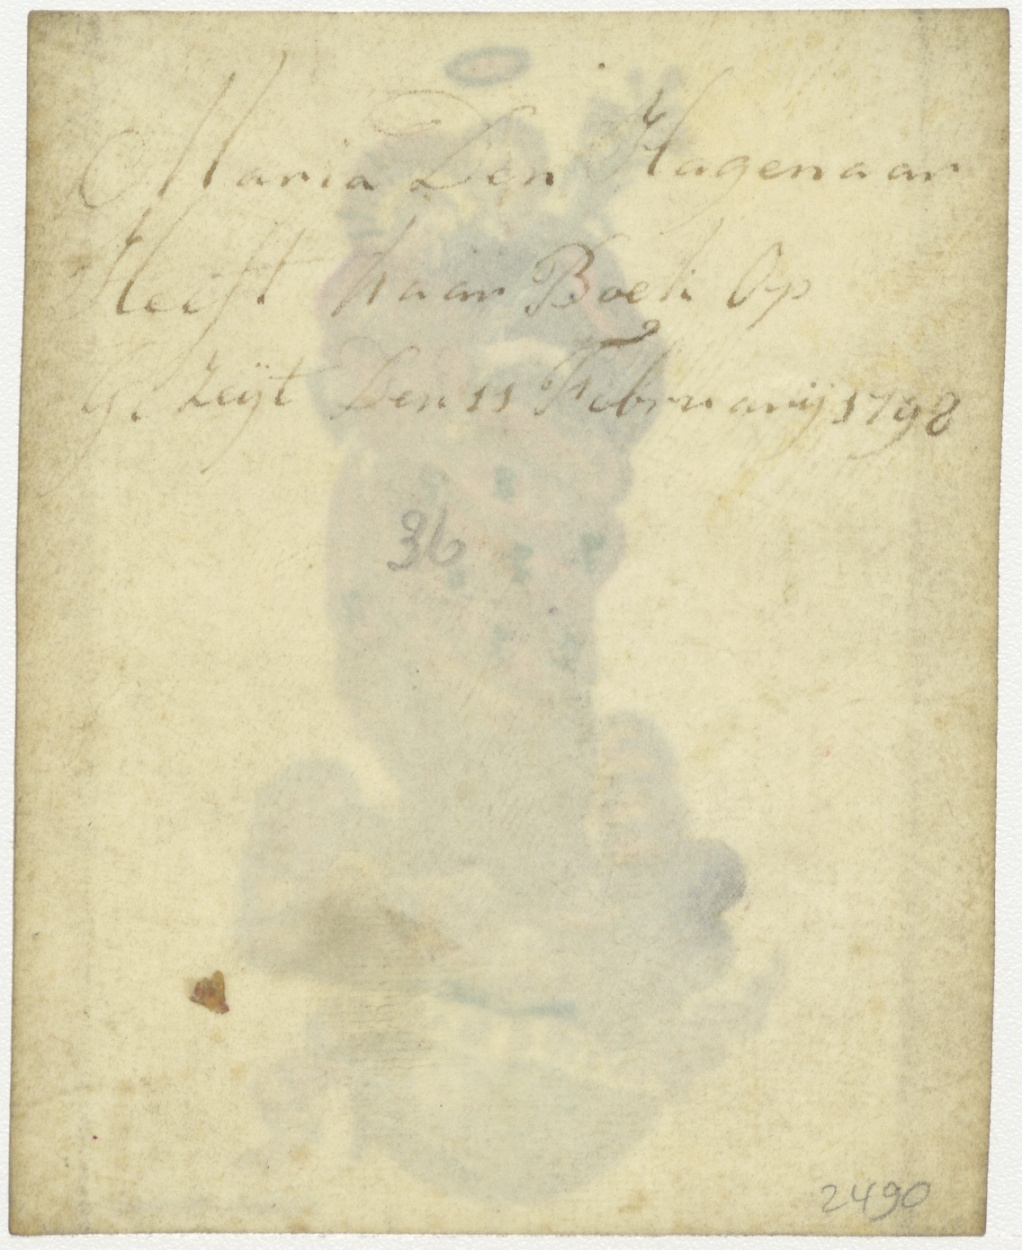 Maria Den Hagenaar
Heeft haar Boek Op
Ge zeÿt Den 11 Februarÿ 1798
36
2490